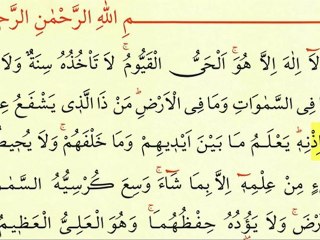 ـمِ اللهِ الرَّحْمٰنِ الرَّحـ
لَآ اِلٰهَ اِلَّا هُوَۚ اَلْحَيُّ الْقَيُّومُۚ لَا تَأْخُذُهُ سِنَةٌ وَلَا
فِى السَّمٰوَاتِ وَمَا فِى الْاَرْضِۜ مَنْ ذَا الَّذٖى يَشْفَعُ عِـ
ـاِذْنِهٖۜ يَعْلَمُ مَا بَيْنَ اَيْدٖيهِمْ وَمَا خَلْفَهُمْۚ وَلَا يُحٖيطُـ
ـىْءٍ مِنْ عِلْمِهٖٓ اِلَّا بِمَا شَٓاءَۚ وَسِعَ كُرْسِيُّهُ السَّمٰـ
ـرْضَۚ وَلَا يَؤُ۫دُهُ حِفْظُهُمَاۚ وَهُوَ الْعَلِىُّ الْعَظٖيمُ